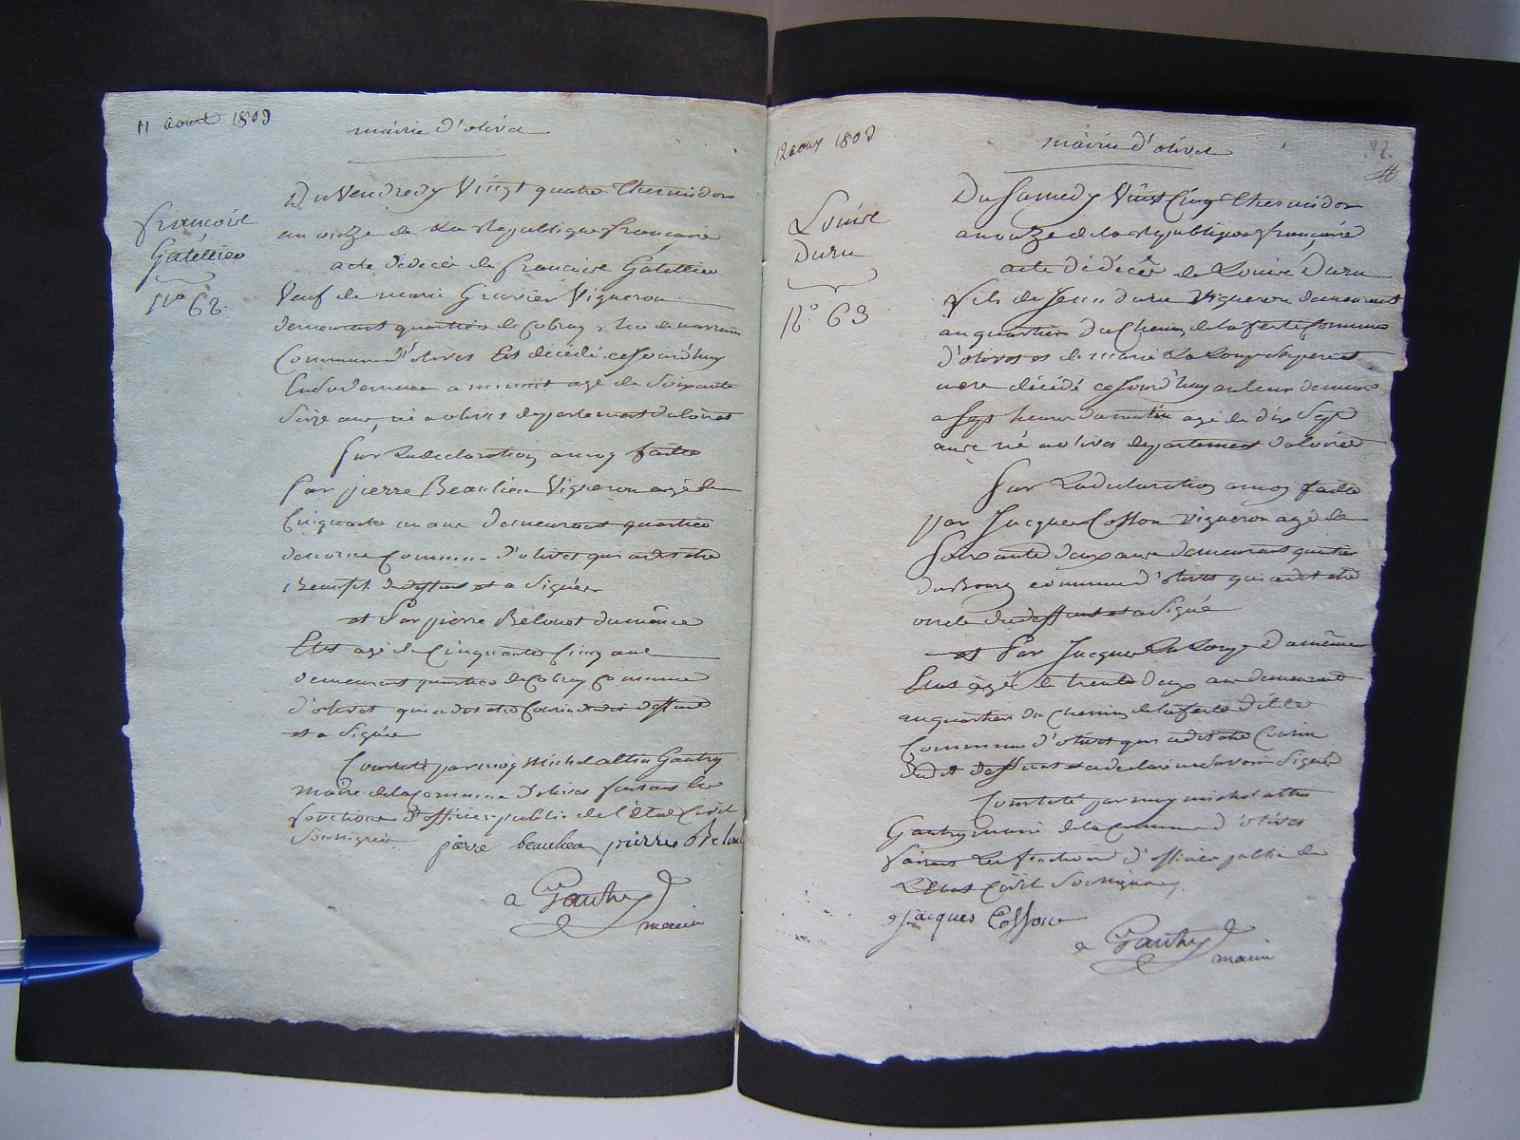 11 aout 1803
mairie d'olivet
françoise
Gatellier
N° 62.
Du Vendredy Vingt quatre Thermidor
an onze de La Republique française
acte de décée de françoise Gatellier
Veuf de marie Gravier Vigneron
demeurant quartier de Cobray
Commune d'olivet Est décédé ce jourd'huy
a minuit agé de Soixante
Seize ans, né a olivet departement du loiret
Sur La declaration a moy faitte
Par pierre Beaulieu Vigneron agé de
Cinquante un ans demeurant quartier
Commune d'olivet qui a dit etre
du deffunt et a Signée
et Par pierre Belouet du même
Etat agé de Cinquante Cinq ans
demeurant quartier de Cobray Commune
d'olivet qui a dit etre Cousin du dit deffunt
et a Signée
Constaté par moy Michel altin Gautry
maire de la Commune d'olivet faisant les
fonctions d'officier public de l'état Civil
Soussignée pierre beaulieu pierre Belouet
a Gautry
maire
12 aout 1803
mairie d'olivet
Louise
Duru
N° 63
Du Samedy Vint Cinq Thermidor
an onze de la republique française
acte de décée de Louise Duru
fils de Jean duru Vigneron demeurant
au quartier du Chemin de la ferté Commune
d'olivet et de marie
mere décédé ce jourd'huy en leur demeure
a Sept heures du matin agé de dix Sept
ans né a olivet departement du loiret
Sur La declaration a moy faitte
par Jacques Cosson Vigneron agé de
Soixante deux ans demeurant quartier
du Bourg commune d'olivet qui a dit etre
oncle du deffunt et a Signé
et Par Jacques du même
Etat agé de trente deux ans demeurant
au quartier du Chemin de la ferté ditte
Commune d'olivet qui a dit etre Cousin
du dit deffunt et a declaré ne Savoir Signer
Constaté par moy michel altin
Gautry maire de la Commune d'olivet
faisant Les fonctions d'officier public de
L'Etat Civil Soussigné
Jacques Cosson
a Gautry
maire